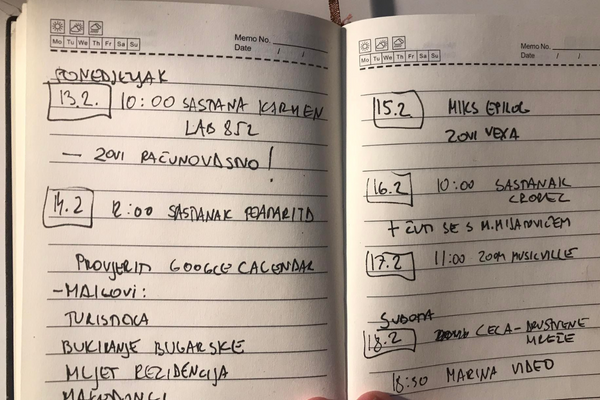 Memo No.
Mo Tu We Th Fr Sa Su
Date / /
PONEDJELJAK
13.2. 10:00 SASTANA KARMEN
LAB 852
— ZOVI RAČUNOVODSTVO!
14.2 12:00 SASTANAK
PROVJERITI GOOGLE CALENDAR
-MAILOVI:
TURISTIČKA
BUKIRANJE BUGARSKE
MLJET REZIDENCIJA
Memo No.
Mo Tu We Th Fr Sa Su
Date / /
15.2 MIKS EPILOG
ZOVI VEXA
16.2 10:00 SASTANAK
+ ČUTI SE S M.MIJATOVIĆEM
17.2 11:00 ZOOM MUSICVILLE
SUBOTA
18.2 CECA - DRUŠTVENE
MREŽE
18:30 MARINA VIDEO